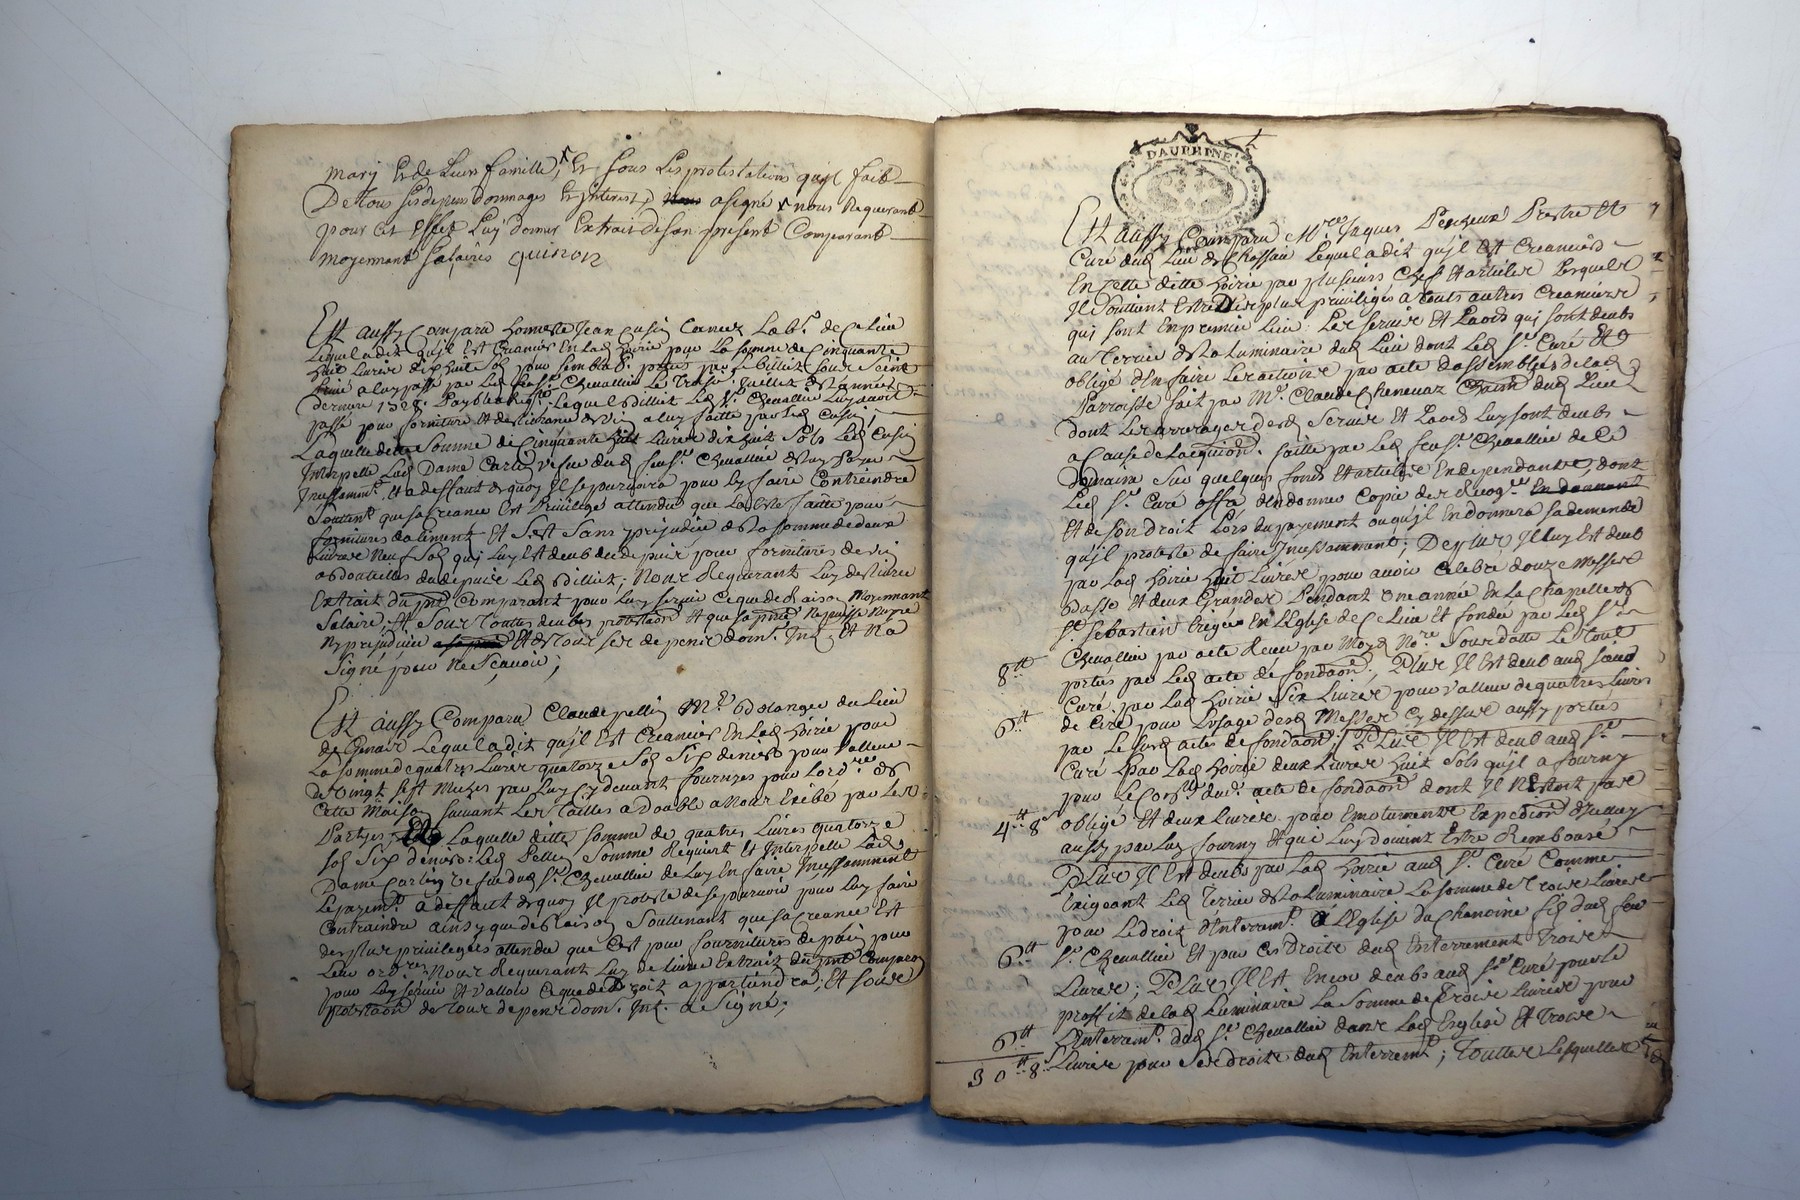 mary et de leur famille, et sous les protestations qu'il fait
De tous ses depens dommages et interest, a signé nous Requerant
pour cet effet luy donner Extrait de son present Comparant
moyennant salaires quinon
Est aussy Comparu honneste Jean cusin lab.r de ce lieu
Lequel a dit qu'il est creancier en lad hoirie pour la somme de cinquante
huit livres dix huit s
passé par led feu s.r Chevallier le juillet de l'année
derniere 1728. lequel billiet led s.r Chevallier luy avoit
passé pour forniture et deslivrance de vin a luy faitte par led cusin;
Laquelle ditte somme de cinquante huit livres dix huit sols led cusin
Interpelle lad Dame vefue dud feu s.r Chevallier de luy payer
Incessamm.t et a deffaut de quoy il se pourvoira pour ly faire contreindre
soutient que sa creance est privilege attendu que la este faitte pour
fornitures daliment et s'est sans prejudice de la somme de deux
livres neuf sols quy luy est deub du depuis pour fornitures de vin
du depuis led billiet; Nous Requerant luy deslivrer
Extrait du p.nt Comparant pour luy servir ce que de raison moyennant
salaire et sous touttes deubes protestaon et que sa ne puisse nuyre
ny prejudicier et de tous ses depens dom.s Int. et n'a
signé pour ne scavoir;
Est aussy Comparu Claude pellin M.e bolanger du lieu
de Lequel a dit qu'il est creancier en lad hoirie pour
la somme de quatres livres quatorze sols six deniers pour valleur
de vingt sept miches par luy cy devant fournyes pour lord.re de
cette maison suivant les tailles a double a nous exibé par les
parties laquelle ditte somme de quatres livres quatorze
sols six deniers led pellin somme Requiert et Interpelle lad
Dame vefue dud s.r Chevallier de luy en faire Incessamment
le payem.t a deffaut de quoy il proteste de se pourvoir pour luy faire
contraindre ainsy que de raison soultenant que sa creance est
des plus privilegiés attendu que c'est pour fournitures de pain pour
leur ordre Nous Requerant luy de livrer Extrait du p.nt Comparant
pour luy servir et valloir ce que de droit appartiendra, et sous
protestaon de tous depens dom. Int. a signé;
DAUPHINE
Est aussy Comparu M.re Jaques Prestre et
Curé dud lieu de Lequel a dit qu'il est creancier
en cette ditte hoirie par plusieurs chefs et articles lesquels
Il soutient estre des plus privilegés a touts autres creanciers
qui sont en premier lieu: les servis et laods qui sont deubs
au terrier de la luminaire dud lieu dont led s.r Curé est
obligé d'en faire les par acte d'assemblées de lad
Parroisse fait par M.e Claude dud lieu
dont les arrerages desd servis et laods luy sont deubs
a cause de lacquision. faitte par led feu s.r Chevallier de ce
domaine sur quelques fonds et articles en dependantes, dont
led s.r Curé offre den donner copie des
et de son droit lors du payement ou qu'il en donnera sa demande
qu'il proteste de faire Incessamment; De plus Il luy est deub
par lad hoirie huit livres pour avoir celebré douze messes
basse et deux grandes pendant une année en la Chapelle de
s.t sebastien erigée en l'Eglise de ce lieu et fondée par led s.r
Chevallier par acte Receu par moyd No.re sous datte le tout
8tt portés par led acte de fondaon; Plus Il est deub aud sieur
Curé par lad hoirie six livres pour valleur de quatres livres
6tt de cire pour lusage desd messes cy dessus aussy portés
par le susd actes de fondaon; Plus Il est deub aud s.r
Curé par lad hoirie deux livres huit sols qu'il a fourny
pour le dud. acte de fondaon dont Il n'estoit pas
4tt 8s obligé et deux livres pour emolumente expedion d'iceluy
aussy par luy fourny et qui luy doivent estre Rembourcé
Plus Il est deubs par lad hoirie aud s.r Curé comme
Exigeant led terrier de la luminaire la somme de Troise livres
pour le droit d'enterrem.t a l'Eglise du chanoine fils dud feu
6tt s.r Chevallier et pour ces droits dud enterrement Troise
livres; Plus Il est encor deubs aud s.r Curé pour le
proffit de lad luminaire la somme de Troise livres pour
6tt l'Interrem.t dud s.r Chevallier dans lad Esglise et Troise
30tt 8s livres pour ses droits dud Enterrem.t; Touttes lesquelles